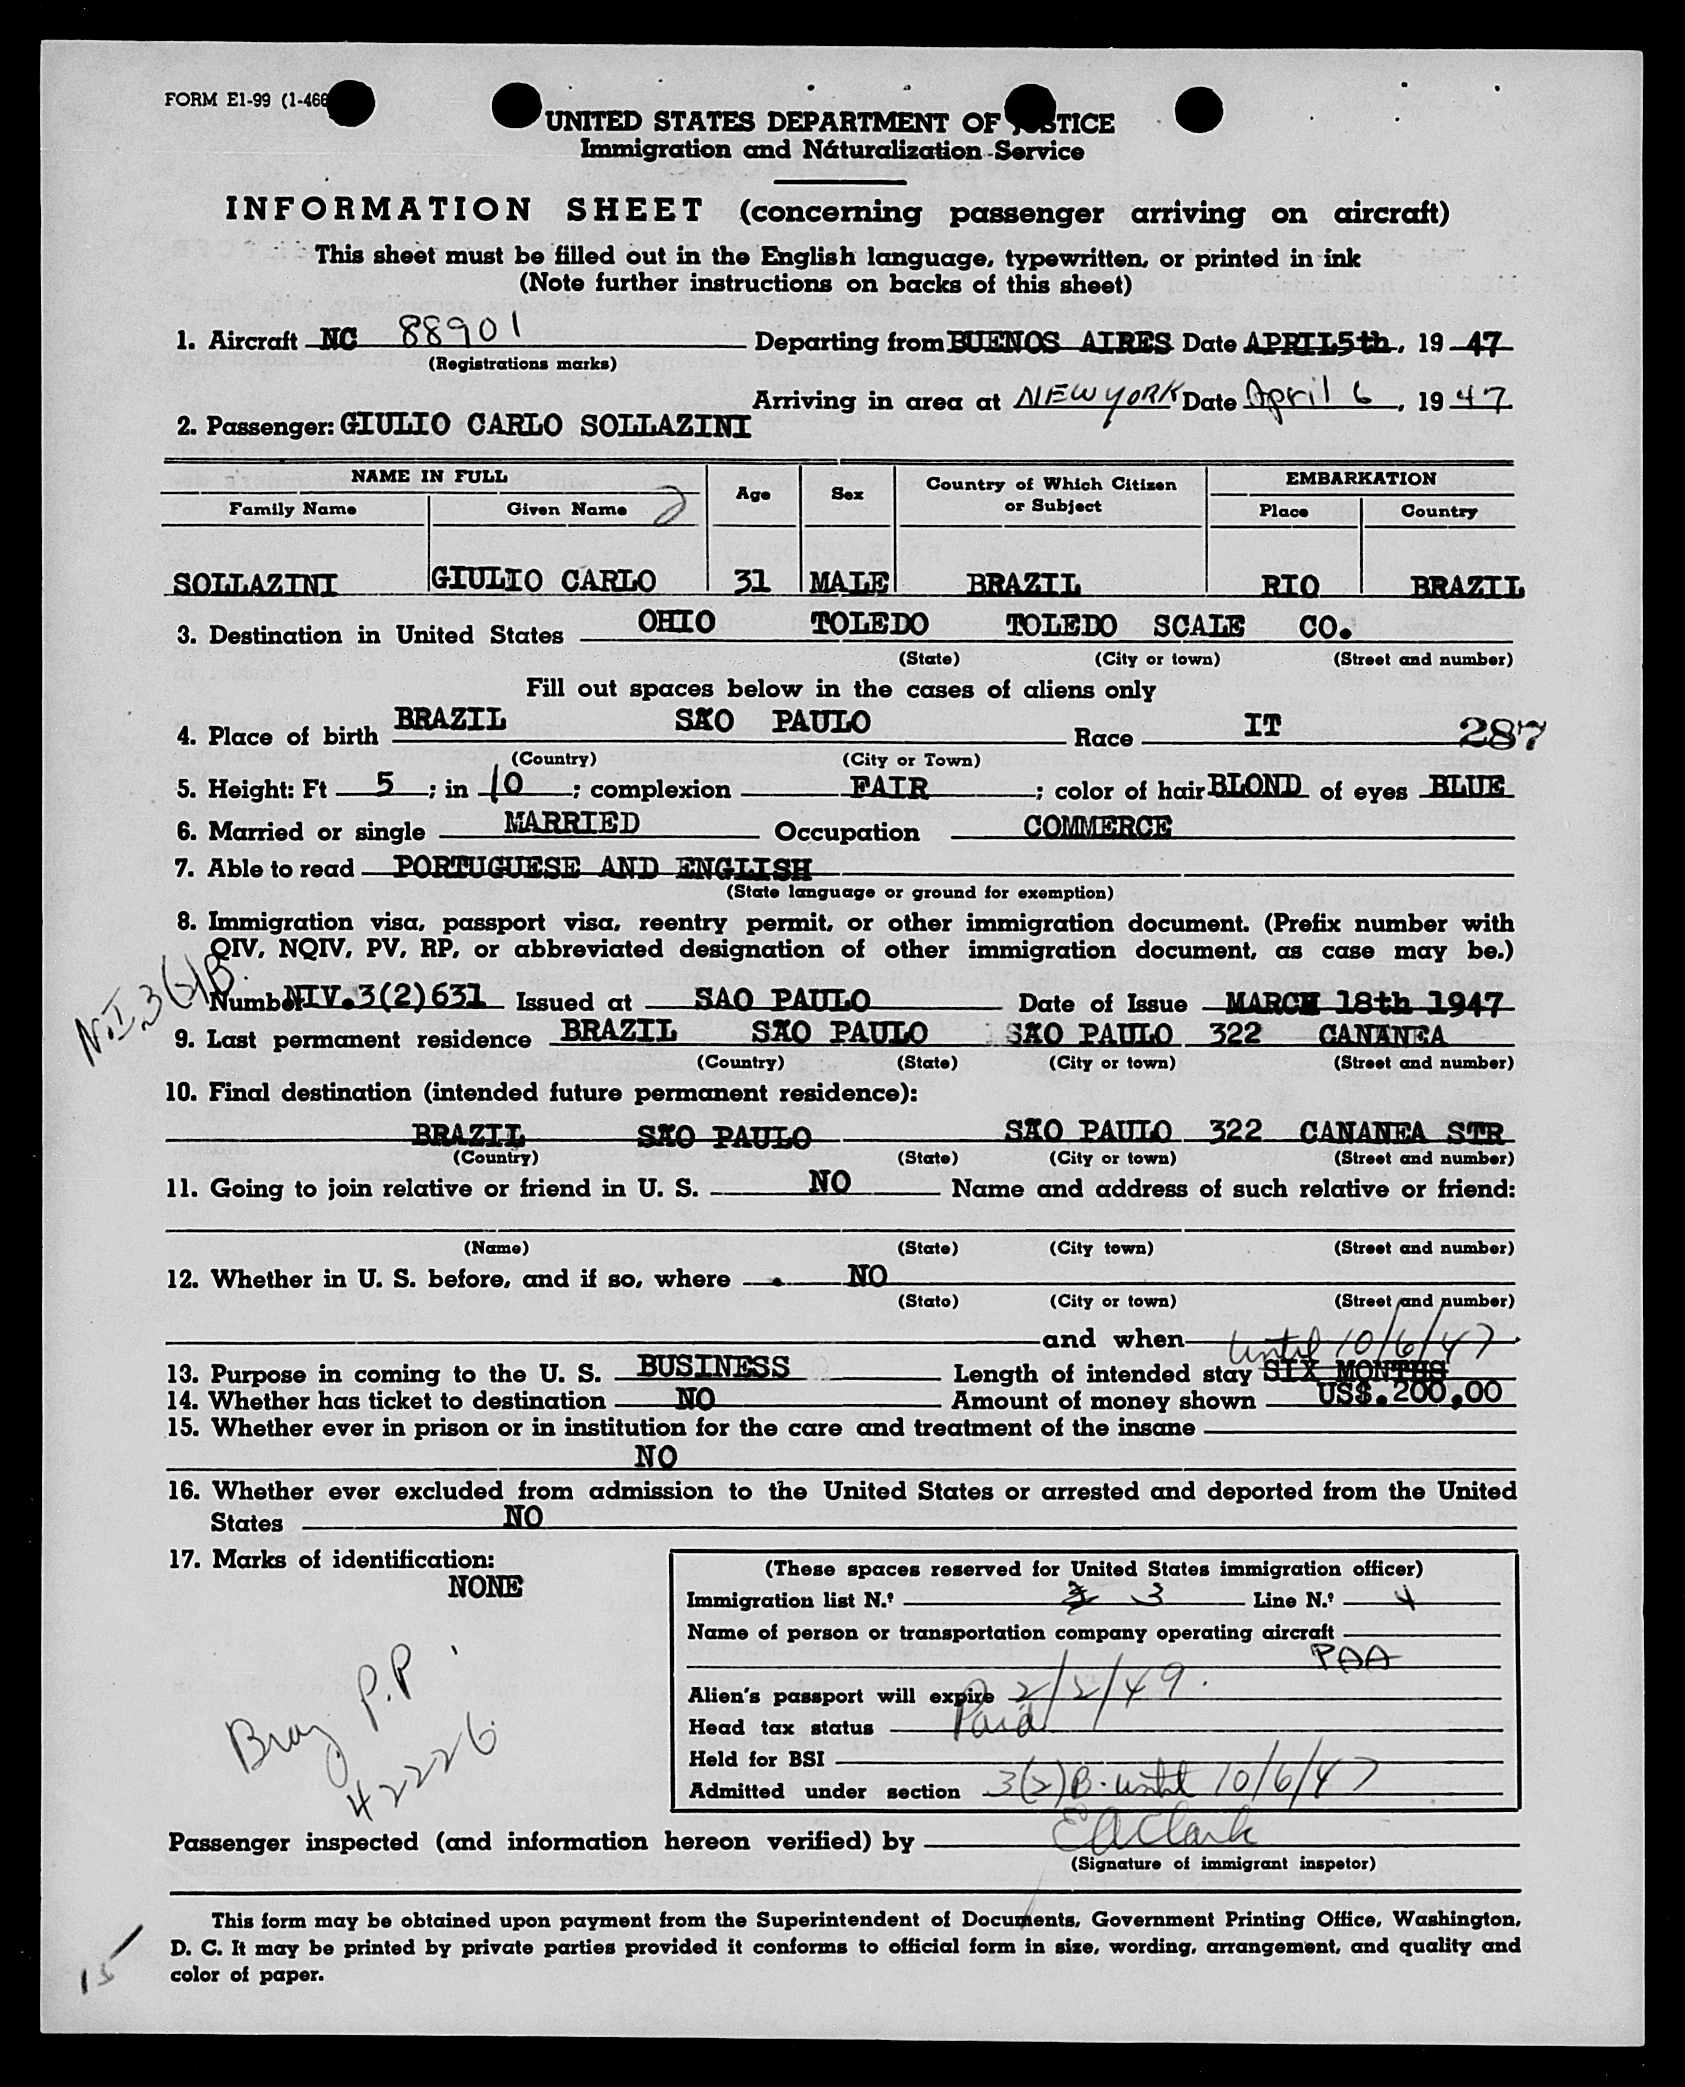 FORM E1-99 (1-466
UNITED STATES DEPARTMENT OF JUSTICE
Immigration and Naturalization Service
INFORMATION SHEET (concerning passenger arriving on aircraft)
This sheet must be filled out in the English language, typewritten, or printed in ink
(Note further instructions on backs of this sheet)
1. Aircraft NC 88901 Departing from BUENOS AIRES Date APRIL 5th, 19 47
(Registrations marks)
Arriving in area at NEW YORK Date April 6, 19 47
2. Passenger: GIULIO CARLO SOLLAZINI
NAME IN FULL Age Sex Country of Which Citizen or Subject EMBARKATION
Family Name Given Name Place Country
SOLLAZINI GIULIO CARLO 31 MALE BRAZIL RIO BRAZIL
3. Destination in United States OHIO TOLEDO TOLEDO SCALE CO.
(State) (City or town) (Street and number)
Fill out spaces below in the cases of aliens only
4. Place of birth BRAZIL SÃO PAULO Race IT 287
(Country) (City or Town)
5. Height: Ft 5 ; in 10 ; complexion FAIR ; color of hair BLOND of eyes BLUE
6. Married or single MARRIED Occupation COMMERCE
7. Able to read PORTUGUESE AND ENGLISH
(State language or ground for exemption)
8. Immigration visa, passport visa, reentry permit, or other immigration document. (Prefix number with
QIV, NQIV, PV, RP, or abbreviated designation of other immigration document, as case may be.)
N.I. 3(2)B.
Number NIV.3(2)631 Issued at SAO PAULO Date of Issue MARCH 18th 1947
9. Last permanent residence BRAZIL SÃO PAULO SÃO PAULO 322 CANANEA
(Country) (State) (City or town) (Street and number)
10. Final destination (intended future permanent residence):
BRAZIL SÃO PAULO SÃO PAULO 322 CANANEA STR
(Country) (State) (City or town) (Street and number)
11. Going to join relative or friend in U. S. NO Name and address of such relative or friend:
(Name) (State) (City town) (Street and number)
12. Whether in U. S. before, and if so, where NO
(State) (City or town) (Street and number)
and when
until 10/6/47
13. Purpose in coming to the U. S. BUSINESS Length of intended stay SIX MONTHS
14. Whether has ticket to destination NO Amount of money shown US$.200,00
15. Whether ever in prison or in institution for the care and treatment of the insane
NO
16. Whether ever excluded from admission to the United States or arrested and deported from the United
States NO
17. Marks of identification:
NONE
(These spaces reserved for United States immigration officer)
Immigration list N.º 3 Line N.º 4
Name of person or transportation company operating aircraft
PAA
Alien's passport will expire 2/2/49.
Head tax status Paid
Held for BSI
Admitted under section 3(2)B. until 10/6/47
Braz P.P.
42226
Passenger inspected (and information hereon verified) by E A Clark
(Signature of immigrant inspetor)
This form may be obtained upon payment from the Superintendent of Documents, Government Printing Office, Washington,
D. C. It may be printed by private parties provided it conforms to official form in size, wording, arrangement, and quality and
color of paper.
15